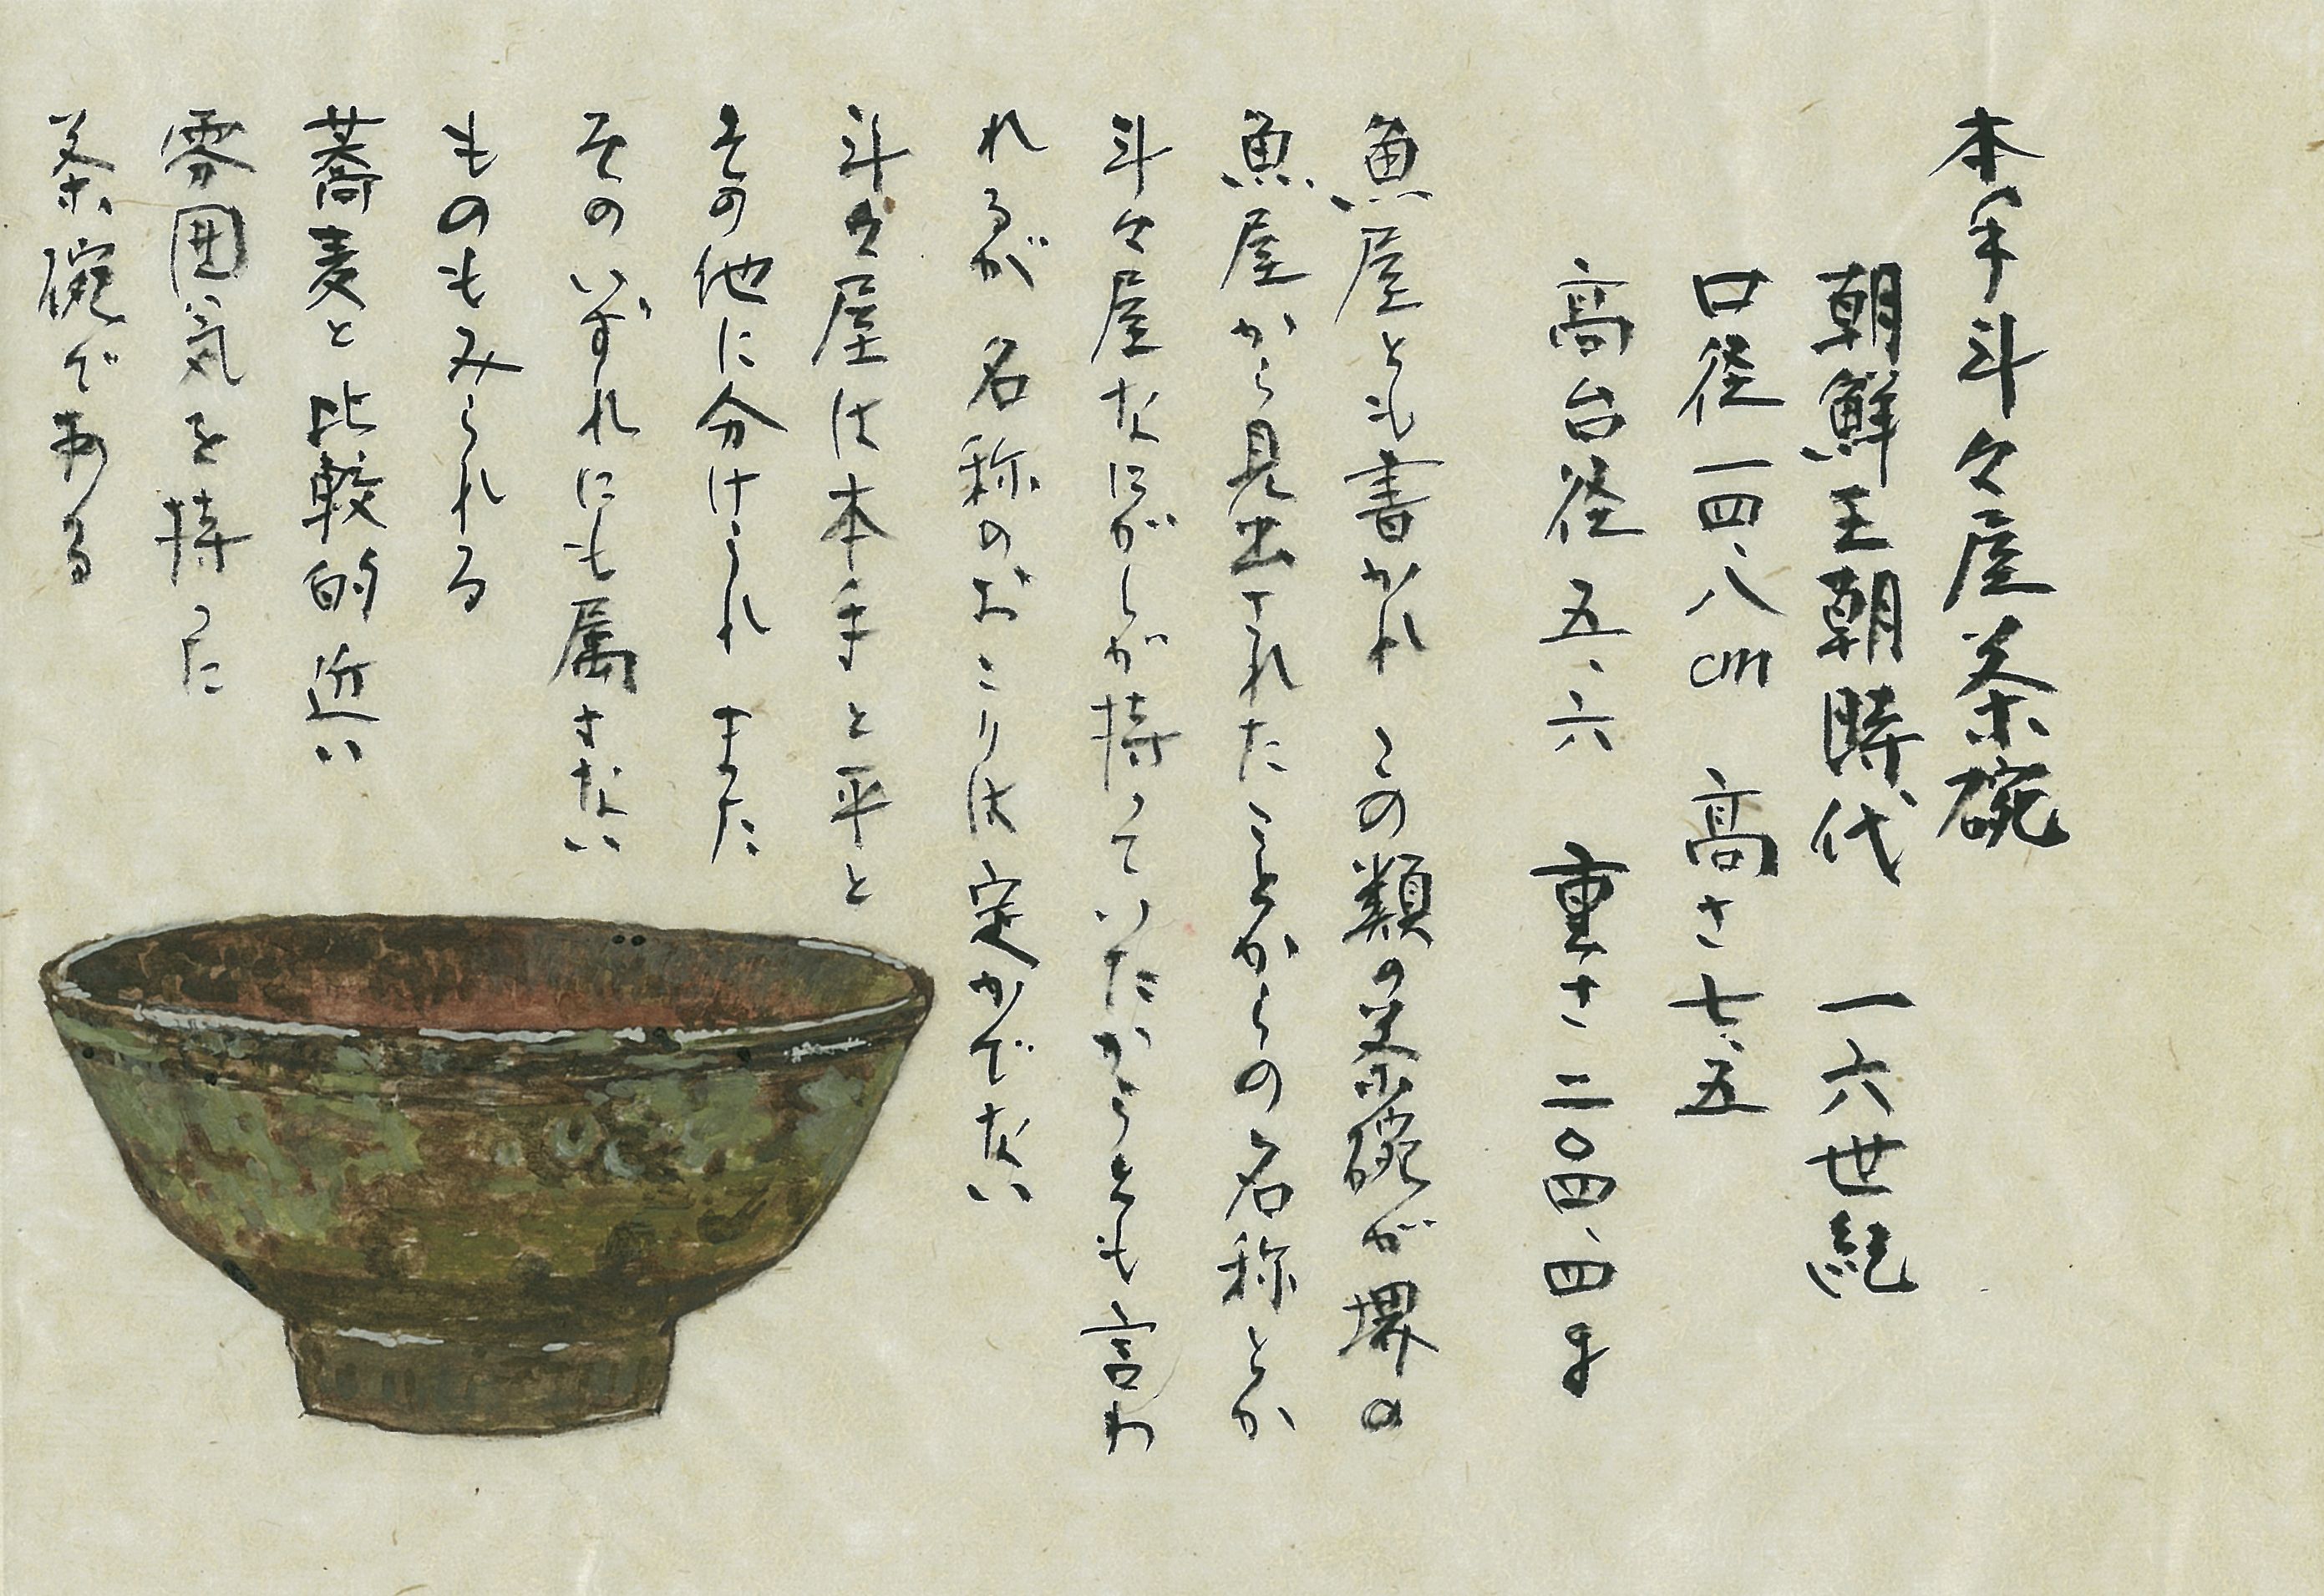 本手斗々屋茶碗
朝鮮王朝時代 一六世紀
口径一四、八cm 高さ七、五
高台径五、六 重さ二〇四、四g
魚屋とも書かれ この類の茶碗が堺の
魚屋から見出されたことからの名称とか
斗々屋なにがしが持っていたからとも言わ
れるが 名称のおこりは定かでない
斗々屋は本手と平と
その他に分けられ また
そのいずれにも属さない
ものもみられる
蕎麦と比較的近い
雰囲気を持った
茶碗である